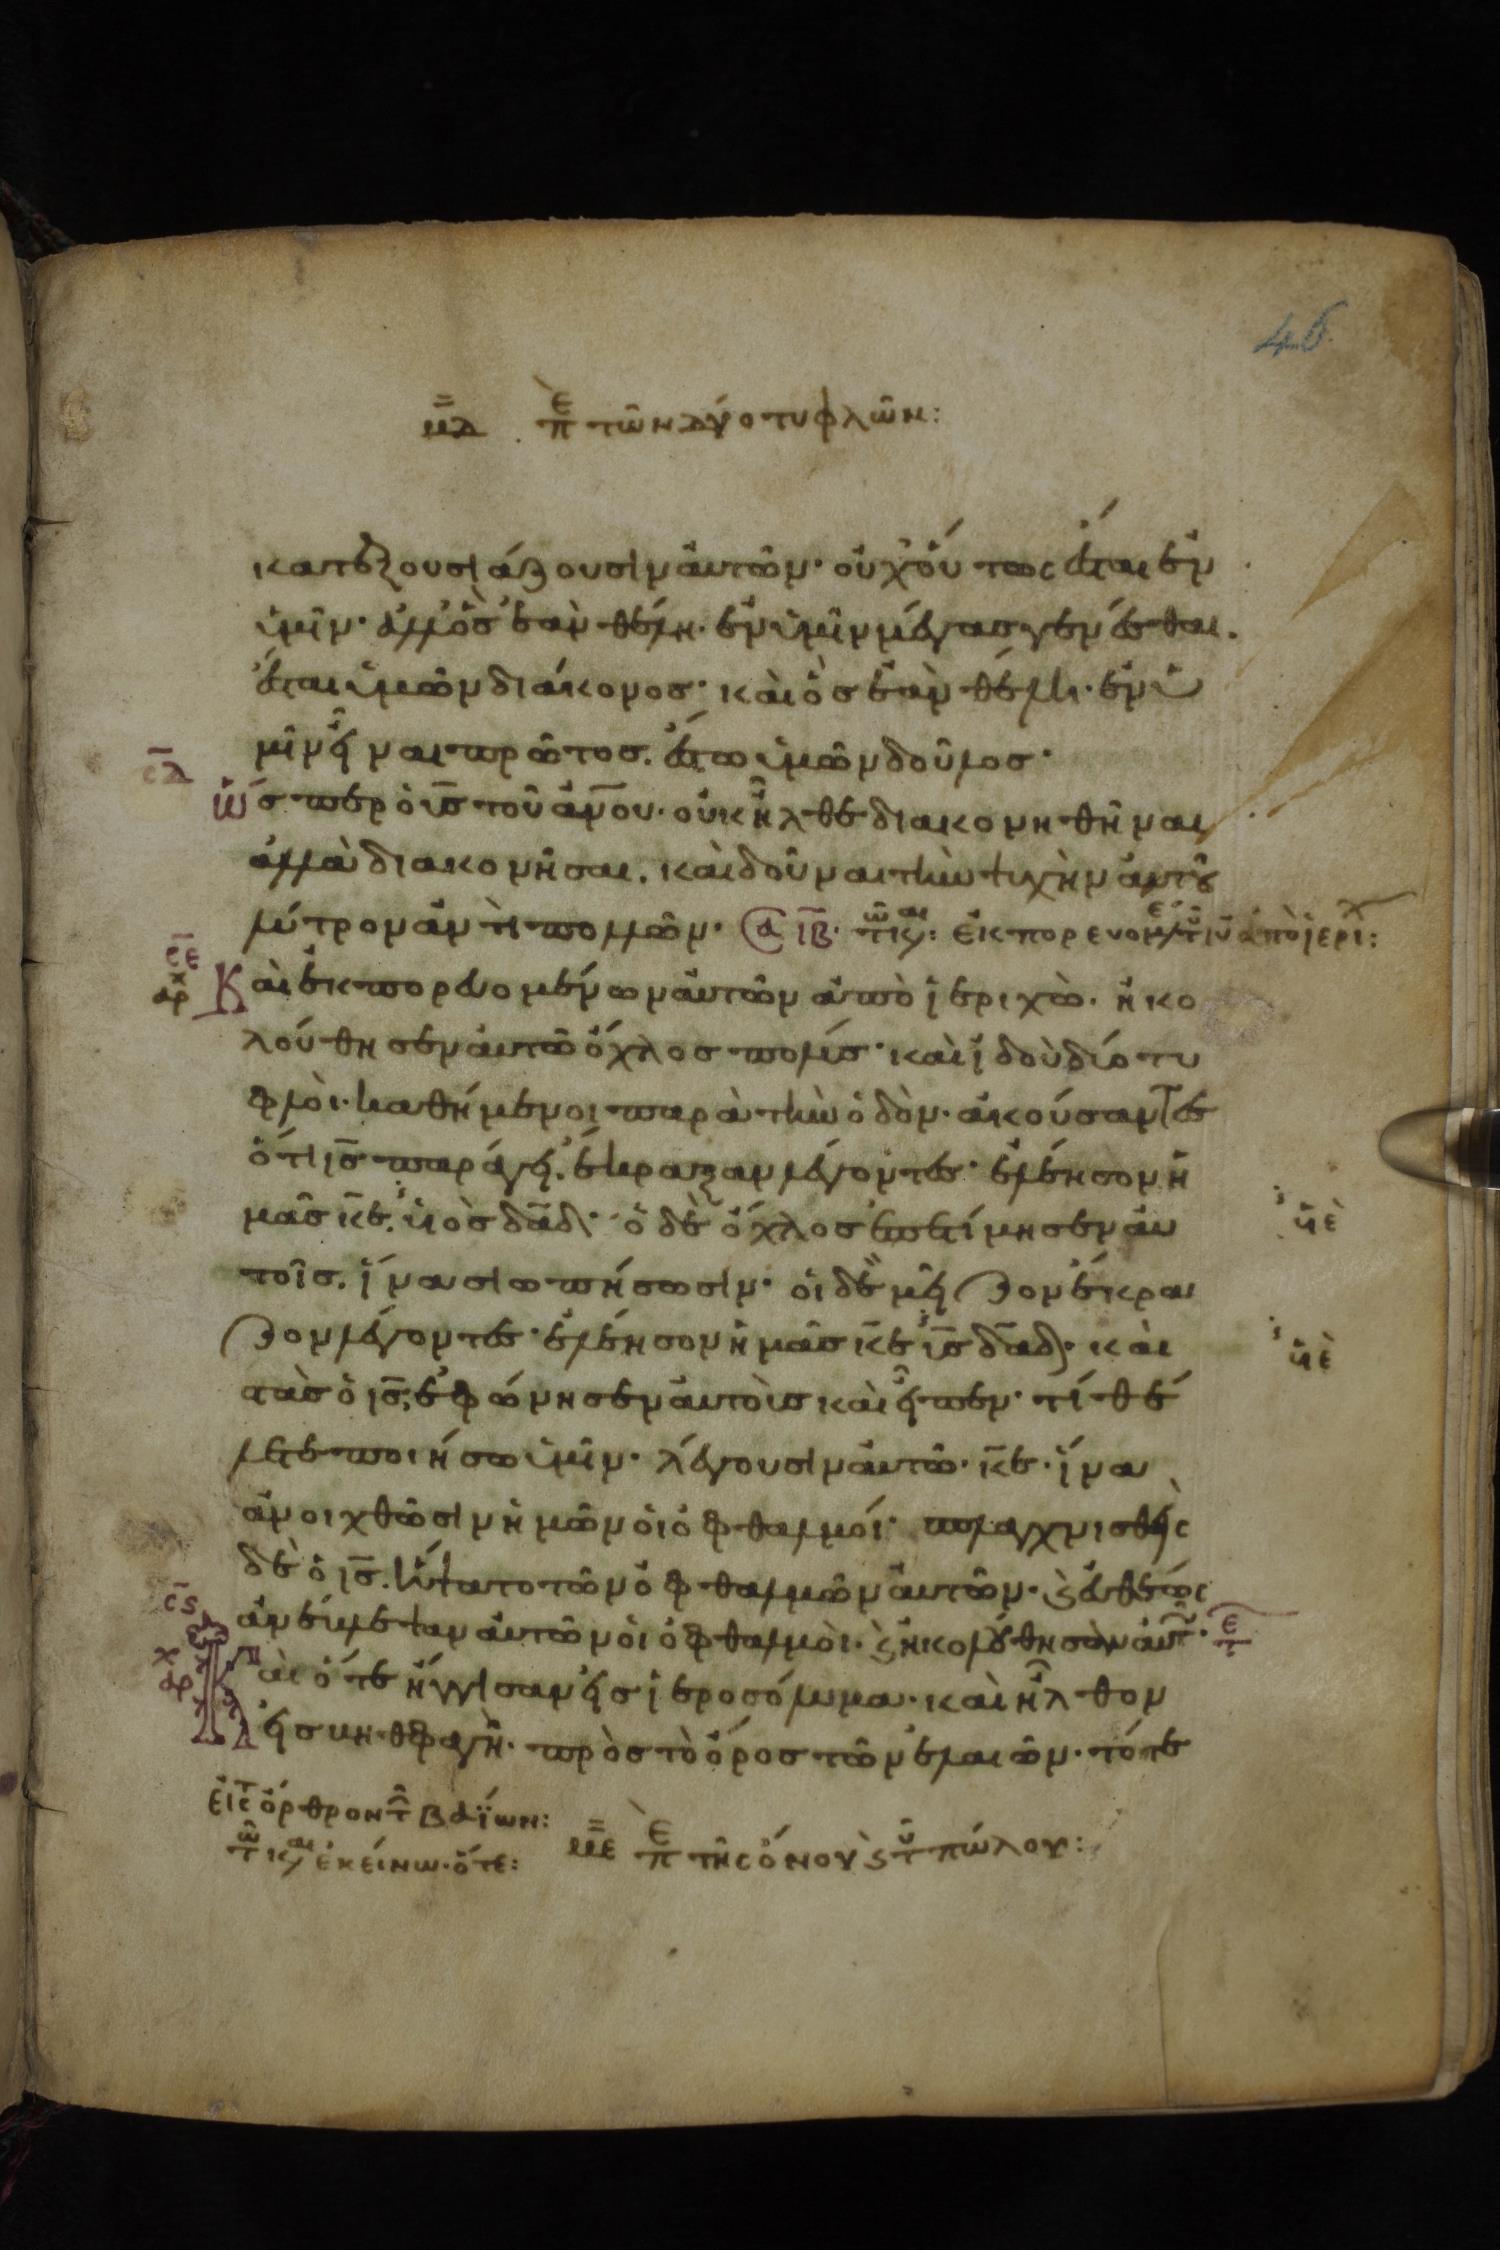 46
μδ περὶ τῶν δύο τυφλῶν:
κατεξουσιάζουσιν αὐτῶν· οὐχ οὕτως ἔσται ἐν
ὑμῖν· ἀλλ' ὃς ἐὰν θέλη· ἐν ὑμῖν μέγας γενέσθαι.
ἔσται ὑμῶν διάκονος· καὶ ὃς ἐὰν θέλει· ἐν ὑ
μῖν εἶναι πρῶτος. ἔστω ὑμῶν δοῦλος·
σδ
ὥσπερ ὁ ῡς τοῦ ᾱνου· οὐκ ἦλθε διακονηθῆναι
ἀλλὰ διακονῆσαι. καὶ δοῦναι τὴν ψυχὴν αὐτοῦ
λύτρον ἀντὶ πολλῶν·
ιβ
σε
αρ
Καὶ ἐκπορευομένων αὐτῶν ἀπὸ ἱεριχὼ· ἠκο
λούθησεν αὐτῶ ὄχλος πολύς· καὶ ἰδοὺ δύο τυ
φλοὶ· καθήμενοι παρὰ τὴν ὁδὸν· ἀκούσαντες
ὅτι ῑς παράγει. ἔκραξαν λέγοντες· ἐλέησον ἡ
μᾶς κ̄ε. υἱὸς δ̄αδ· ὁ δὲ ὄχλος ἐπετίμησεν αὐ
τοῖς. ἵνα σιωπήσωσιν· οἱ δὲ μεῖζον ἔκρα
ζον λέγοντες· ἐλέησον ἡμᾶς κ̄ε ῡς δ̄αδ· καὶ
στὰς ὁ ῑς, ἐφώνησεν αὐτοὺς καὶ εἶπεν· τί θέ
λετε ποιήσω ὑμῖν· λέγουσιν αὐτῶ· κ̄ε· ἵνα
ἀνοιχθῶσιν ἡμῶν οἱ ὀφθαλμοί· σπλαγχνισθεὶς
δὲ ὁ ῑς. ἥψατο τῶν ὀφθαλμῶν αὐτῶν· ϗ εὐθέως
σϛ
ἀνέβλεψαν αὐτῶν οἱ ὀφθαλμοὶ· ϗ ἠκολούθησαν αὐτῶ·
αρ
Καὶ ὅτε ἤγγισαν εἰς ἱεροσόλυμα· καὶ ἦλθον
εἰς βηθφαγῆ· πρὸς τὸ ὄρος τῶν ἐλαιῶν· τότε
εἰς τ ὄρθρον τῶν βαΐων:
τῶ κ ἐκείνω· ὅτε:
με περὶ τῆς ὄνου ϗ τοῦ πώλου: